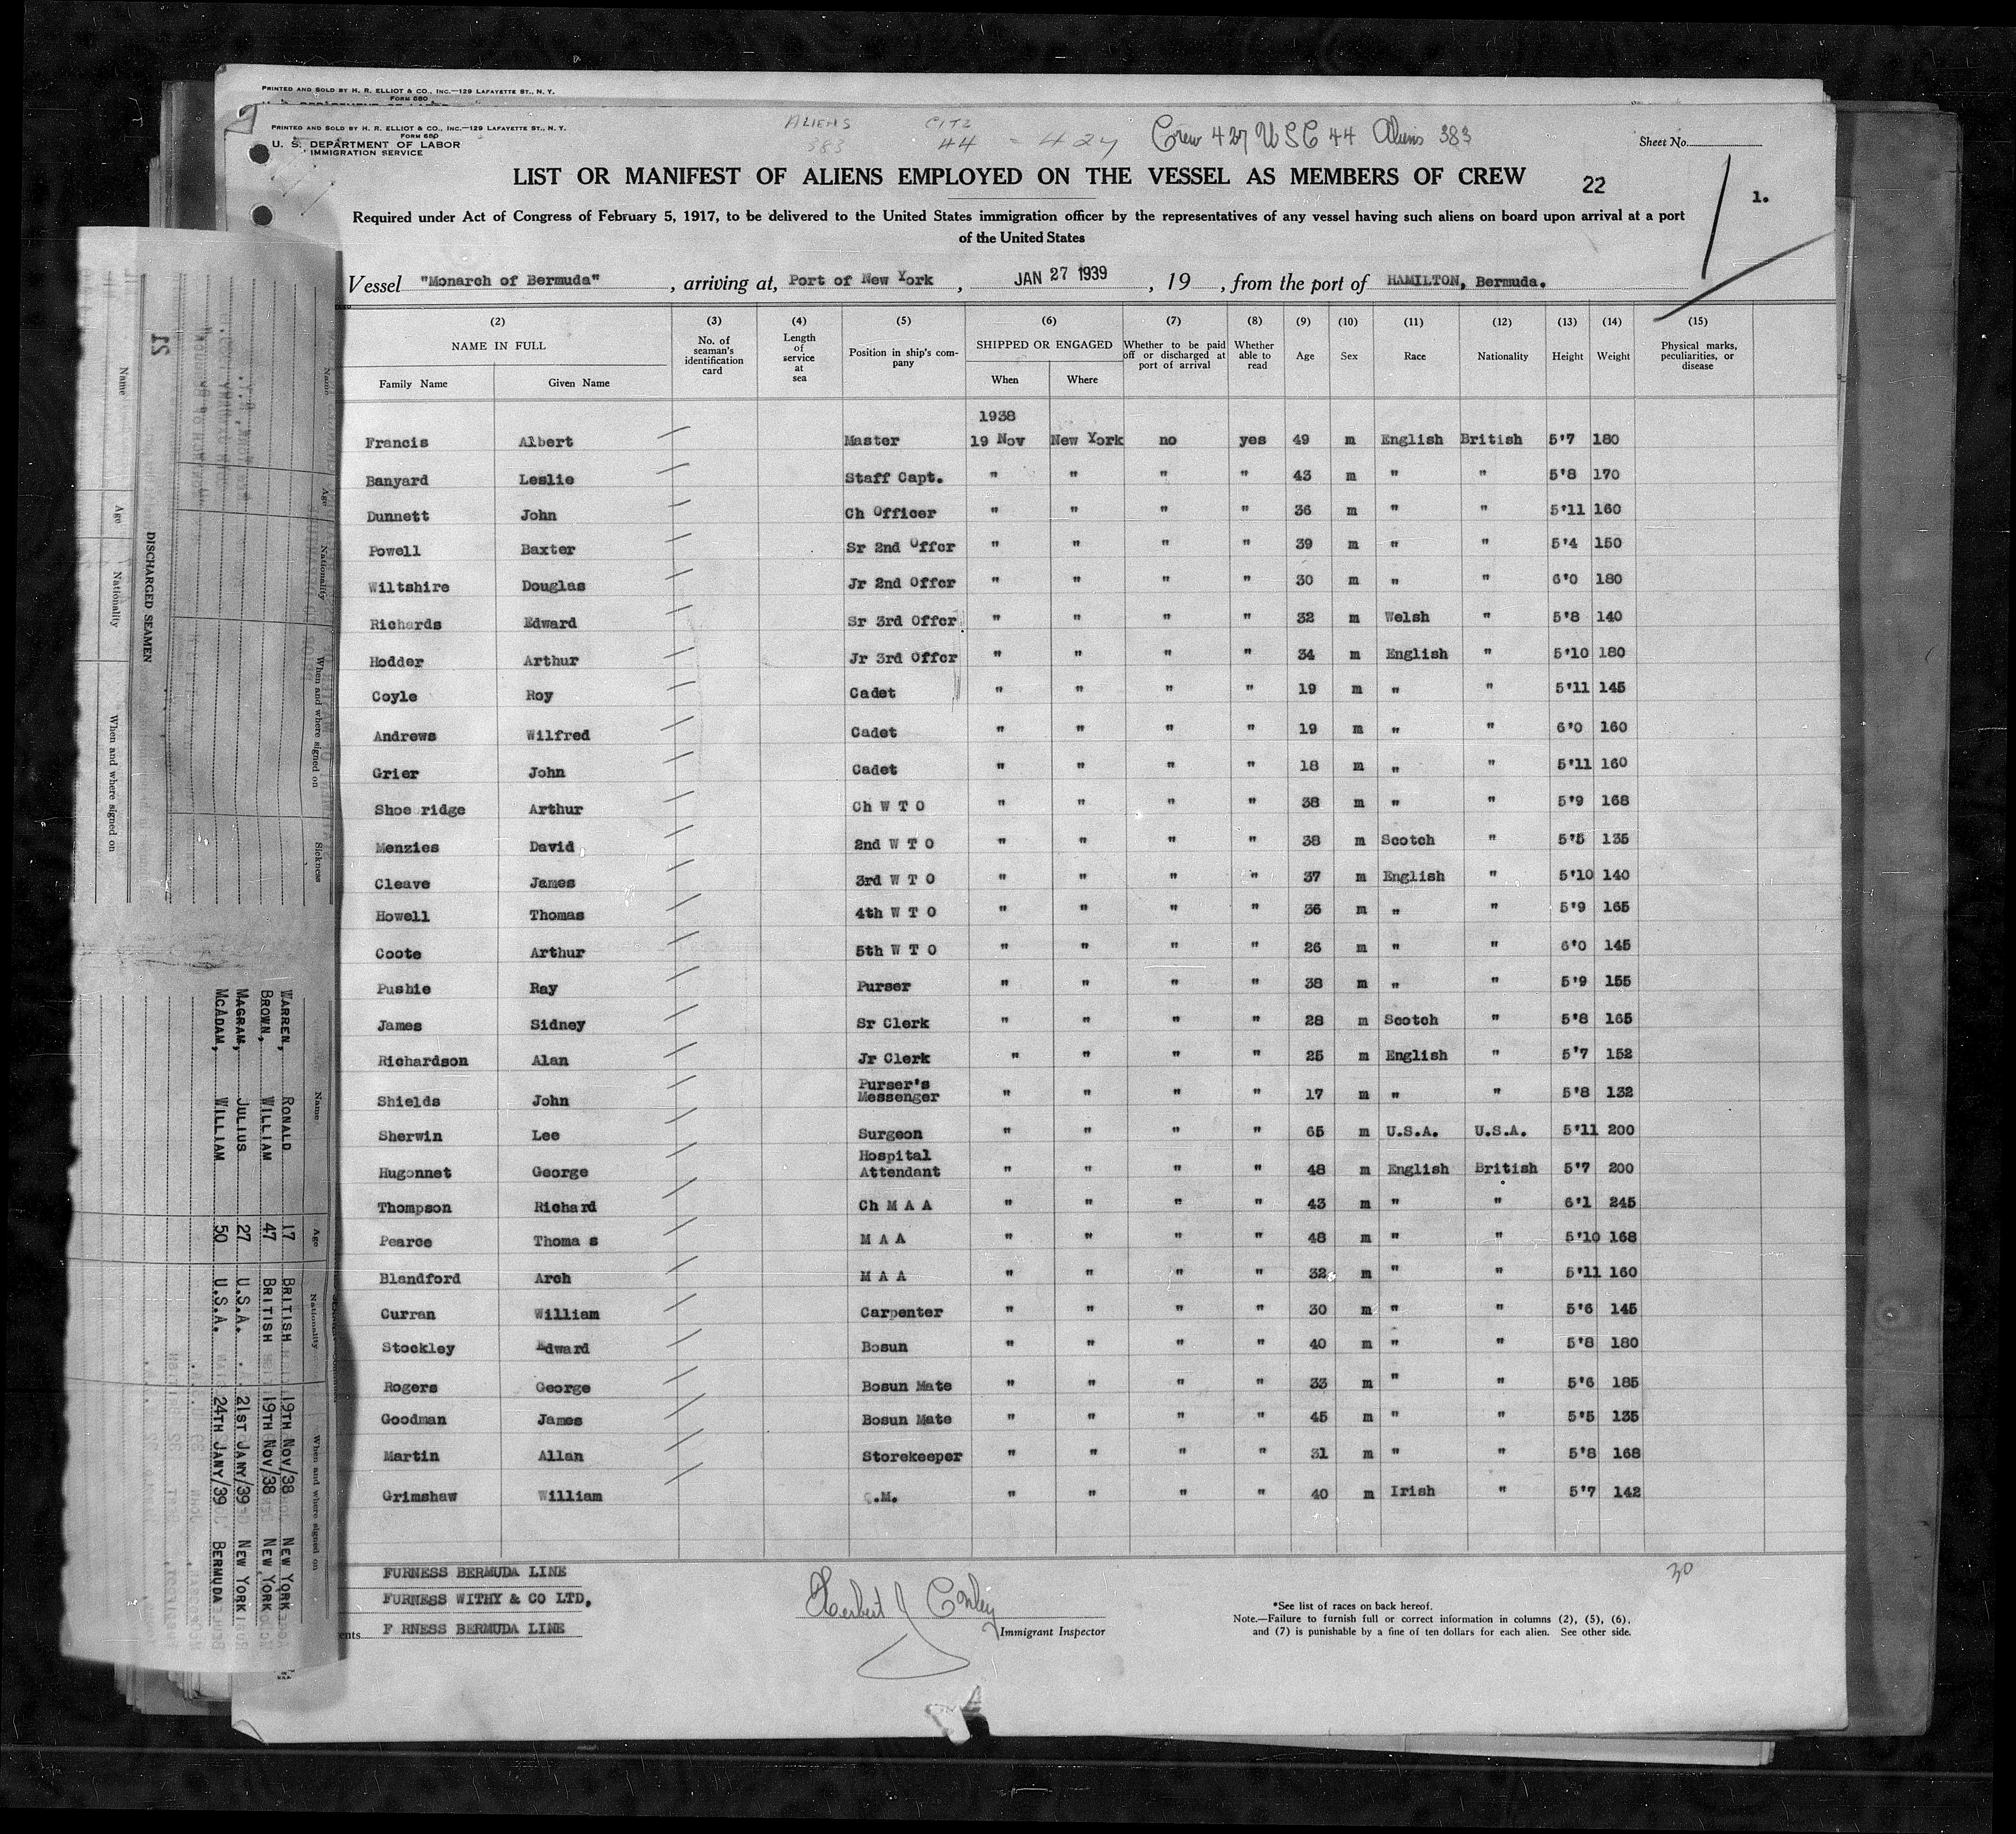 PRINTED AND SOLD BY H. R. ELLIOT & CO., INC.—129 LAFAYETTE ST., N. Y.
FORM 680
PRINTED AND SOLD BY H. R. ELLIOT & CO., INC.—129 LAFAYETTE ST., N. Y.
FORM 680
U. S. DEPARTMENT OF LABOR
IMMIGRATION SERVICE
ALIENS CITZ
383 44 = 427 Crew 427 USC 44 Aliens 383
Sheet No.
LIST OR MANIFEST OF ALIENS EMPLOYED ON THE VESSEL AS MEMBERS OF CREW 22 1.
Required under Act of Congress of February 5, 1917, to be delivered to the United States immigration officer by the representatives of any vessel having such aliens on board upon arrival at a port
of the United States
Vessel "Monarch of Bermuda", arriving at, Port of New York, JAN 27 1939, 19 , from the port of HAMILTON, Bermuda.
(2) (3) (4) (5) (6) (7) (8) (9) (10) (11) (12) (13) (14) (15)
NAME IN FULL No. of seaman's identification card Length of service at sea Position in ship's company SHIPPED OR ENGAGED Whether to be paid off or discharged at port of arrival Whether able to read Age Sex Race Nationality Height Weight Physical marks, peculiarities, or disease
Family Name Given Name When Where
1938
Francis Albert Master 19 Nov New York no yes 49 m English British 5'7 180
Banyard Leslie Staff Capt. " " " " 43 m " " 5'8 170
Dunnett John Ch Officer " " " " 36 m " " 5'11 160
Powell Baxter Sr 2nd Offcr " " " " 39 m " " 5'4 150
Wiltshire Douglas Jr 2nd Offcr " " " " 30 m " " 6'0 180
Richards Edward Sr 3rd Offcr " " " " 32 m Welsh " 5'8 140
Hodder Arthur Jr 3rd Offcr " " " " 34 m English " 5'10 180
Coyle Roy Cadet " " " " 19 m " " 5'11 145
Andrews Wilfred Cadet " " " " 19 m " " 6'0 160
Grier John Cadet " " " " 18 m " " 5'11 160
Shoe ridge Arthur Ch W T O " " " " 38 m " " 5'9 168
Menzies David 2nd W T O " " " " 38 m Scotch " 5'5 135
Cleave James 3rd W T O " " " " 37 m English " 5'10 140
Howell Thomas 4th W T O " " " " 36 m " " 5'9 165
Coote Arthur 5th W T O " " " " 26 m " " 6'0 145
Pushie Ray Purser " " " " 38 m " " 5'9 155
James Sidney Sr Clerk " " " " 28 m Scotch " 5'8 165
Richardson Alan Jr Clerk " " " " 25 m English " 5'7 152
Shields John Purser's Messenger " " " " 17 m " " 5'8 132
Sherwin Lee Surgeon " " " " 65 m U.S.A. U.S.A. 5'11 200
Hugonnet George Hospital Attendant " " " " 48 m English British 5'7 200
Thompson Richard Ch M A A " " " " 43 m " " 6'1 245
Pearce Thoma s M A A " " " " 48 m " " 5'10 168
Blandford Arch M A A " " " " 32 m " " 5'11 160
Curran William Carpenter " " " " 30 m " " 5'6 145
Stockley Edward Bosun " " " " 40 m " " 5'8 180
Rogers George Bosun Mate " " " " 33 m " " 5'6 185
Goodman James Bosun Mate " " " " 45 m " " 5'5 135
Martin Allan Storekeeper " " " " 31 m " " 5'8 168
Grimshaw William Q.M. " " " " 40 m Irish " 5'7 142
30
FURNESS BERMUDA LINE
FURNESS WITHY & CO LTD,
ents F RNESS BERMUDA LINE
Herbert J Conley
Immigrant Inspector
*See list of races on back hereof.
Note.—Failure to furnish full or correct information in columns (2), (5), (6),
and (7) is punishable by a fine of ten dollars for each alien. See other side.
21
DISCHARGED SEAMEN
Name Age Nationality When and where signed on
Name Age Nationality When and where signed on Sickness
Name Age Nationality When and where signed on
WARREN, RONALD 17 BRITISH 19TH NOV/38 NEW YORK
BROWN, WILLIAM 47 BRITISH 19TH NOV/38 NEW YORK
MAGRAM, JULIUS 27 U.S.A. 21ST JANY/39 NEW YORK
MCADAM, WILLIAM 50 U.S.A. 24TH JANY/39 BERMUDA